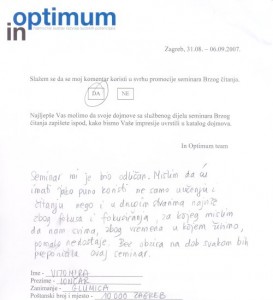 optimum
in
Zagreb, 31.08. – 06.09.2007.
Slažem se da se moj komentar koristi u svrhu promocije seminara Brzog čitanja.
DA
NE
Najljepše Vas molimo da svoje dojmove za službenog dijela seminara Brzog
čitanja zapišete ispod, kako bismo Vaše impresije uvrstili u katalog dojmova.
In Optimum team
Seminar mi je bio odličan. Mislim da ću
imati jako puno koristi ne samo u učenju i
čitanju nego i u drugim stvarima najviše
zbog fokusa i fokusiranja, za kojeg mislim
da nam svima, zbog vremena u kojem živimo,
pomalo nedostaje. Bez obzira na dob svakom bih
preporučila ovaj seminar.
Ime - VITOMIRA
Prezime - LONČAR
Zanimanje - GLUMICA
Poštanski broj i mjesto - 10 000 ZAGREB